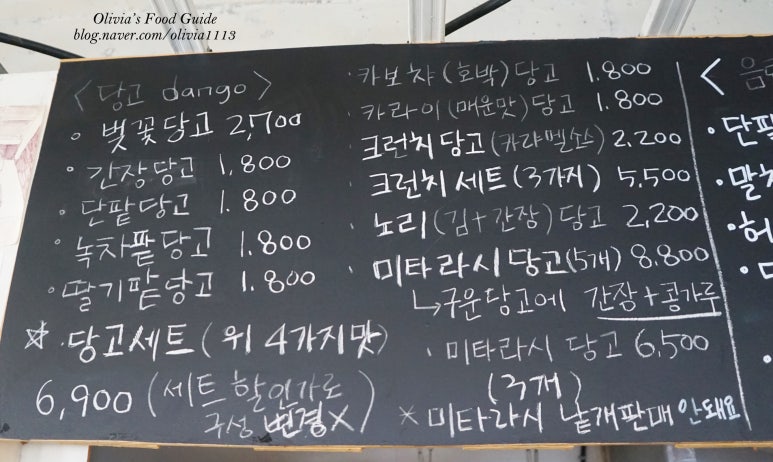 Olivia's Food Guide
blog.naver.com/olivia1113
<당고 dango>
◦ 벚꽃당고 2,700
◦ 간장당고 1.800
◦ 단팥당고 1.800
◦ 녹차팥당고 1.800
◦ 딸기팥당고 1.800
☆ · 당고세트 (위 4가지맛)
6,900 (세트 할인가로
구성 변경X)
· 카보챠 (호박) 당고 1.800
· 카라이 (매운맛) 당고 1.800
크런치 당고 (카라멜소스) 2,200
크런치 세트 (3가지) 5,500
· 노리 (김+간장) 당고 2,200
· 미타라시 당고 (5개) 8.800
↳구운당고에 간장+콩가루
· 미타라시 당고 6,500
(3개)
* 미타라시 낱개판매 안돼요
<
· 단팥
· 말차
· 허